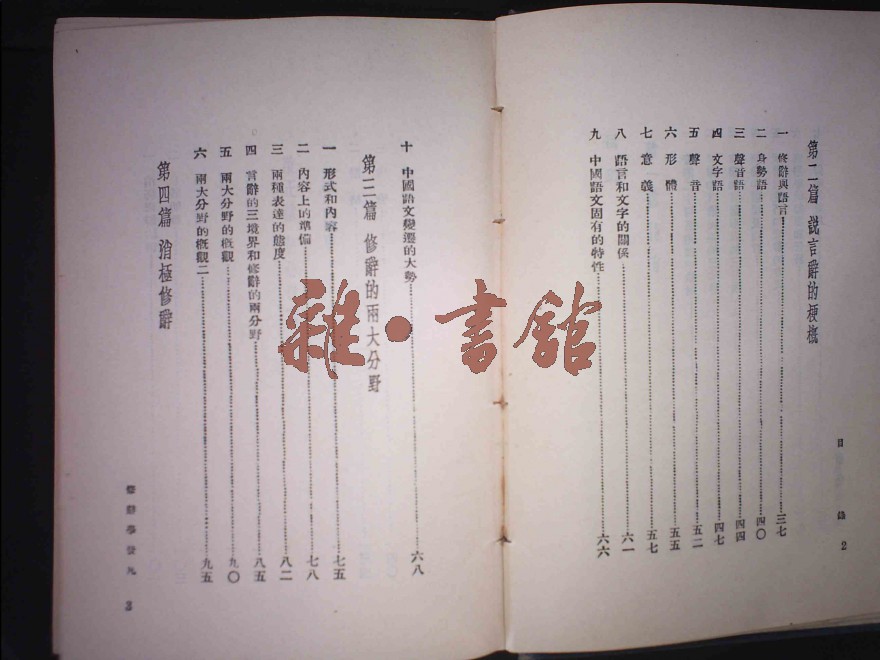 第二篇 說言辭的梗概
一 修辭與語言……三七
二 身勢語……四〇
三 聲音語……四四
四 文字語……四七
五 聲音……五二
六 形體……五五
七 意義……五七
八 語言和文字的關係……六一
九 中國語文固有的特性……六六
目錄 2
十 中國語文變遷的大勢……六八
第三篇 修辭的兩大分野
一 形式和內容……七五
二 內容上的準備……七八
三 兩種表達的態度……八二
四 言辭的三境界和修辭的兩分野……八五
五 兩大分野的概觀一……九〇
六 兩大分野的概觀二……九五
第四篇 消極修辭
修辭學發凡 3
雜·書館